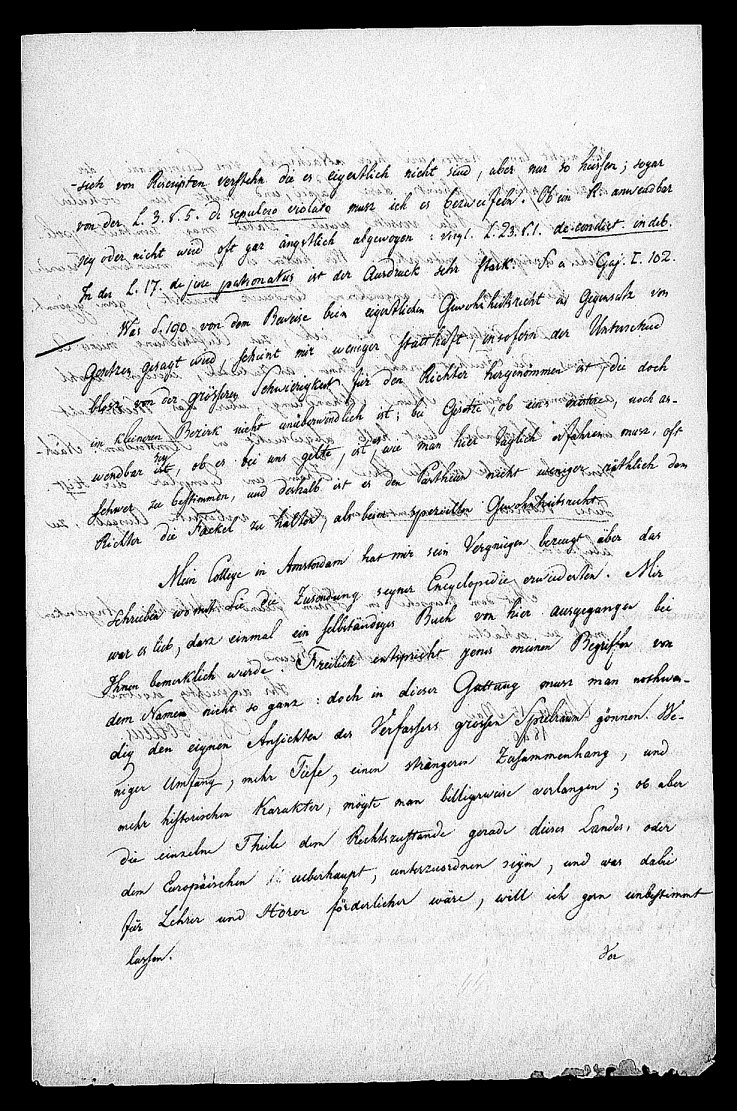 sich von Rescripten verstehn die es eigentlich nicht sind, aber nur so heissen; sogar
von der L. 3. §. 5. de sepulcro violato musz ich es bezweifeln. Ob ein R. anwendbar
sey oder nicht wird oft gar ängstlich abgewogen: vergl. L. 23. §. 1. de condict. indeb.
In der L. 17. de jure patronatus ist der Ausdruck sehr stark. S. a. Gaj. I. 102.
Was S. 190. von dem Beweise beim eigentlichen Gewohnheitsrecht im Gegensatz von
Gesetzen gesagt wird, scheint mir weniger statthaft, insofern der Unterschied
blosz von der gröszeren Schwierigkeit für den Richter hergenommen ist, die doch
im kleineren Bezirk nicht unüberwendlich ist; bei Gesetze, ob eins noch an-
wendbar sey, ob es bei uns gelte, ist es, wie man hier täglich erfahren musz, oft
schwer zu bestimmen, und deshalb ist es den Partheien nicht weniger räthlich dem
Richter die Fackel zu halten, als beim speziellen Gewohnheitsrecht.
Mein College in Amsterdam hat mir sein Vergnügen bezeugt über das
Schreiben womit Sie die Zusendung seyner Encyclopedie erwiederten. Mir
war es lieb, dasz einmal ein selbständiges Buch von hier ausgegangen bei
Ihnen bemerklich wurde. Freilich entspricht jenes meinen Begriffen von
dem Namen nicht so ganz: doch in dieser Gattung musz man nothwen-
dig den eignen Ansichten des Verfassers groszen Spielraum gönnen. We-
niger Umfang, mehr Tiefe, einen strängeren Zusammenhang, und
mehr historischen Karakter, mögte man billigerweise verlangen; ob aber
die einzelne Theile dem Rechtszustande gerade dieses Landes, oder
dem Europäischen ueberhaupt, unterzuordnen seyen, und was dabei
für Lehrer und Hörer förderlicher wäre, will ich gern unbestimmt
lassen.
Vor